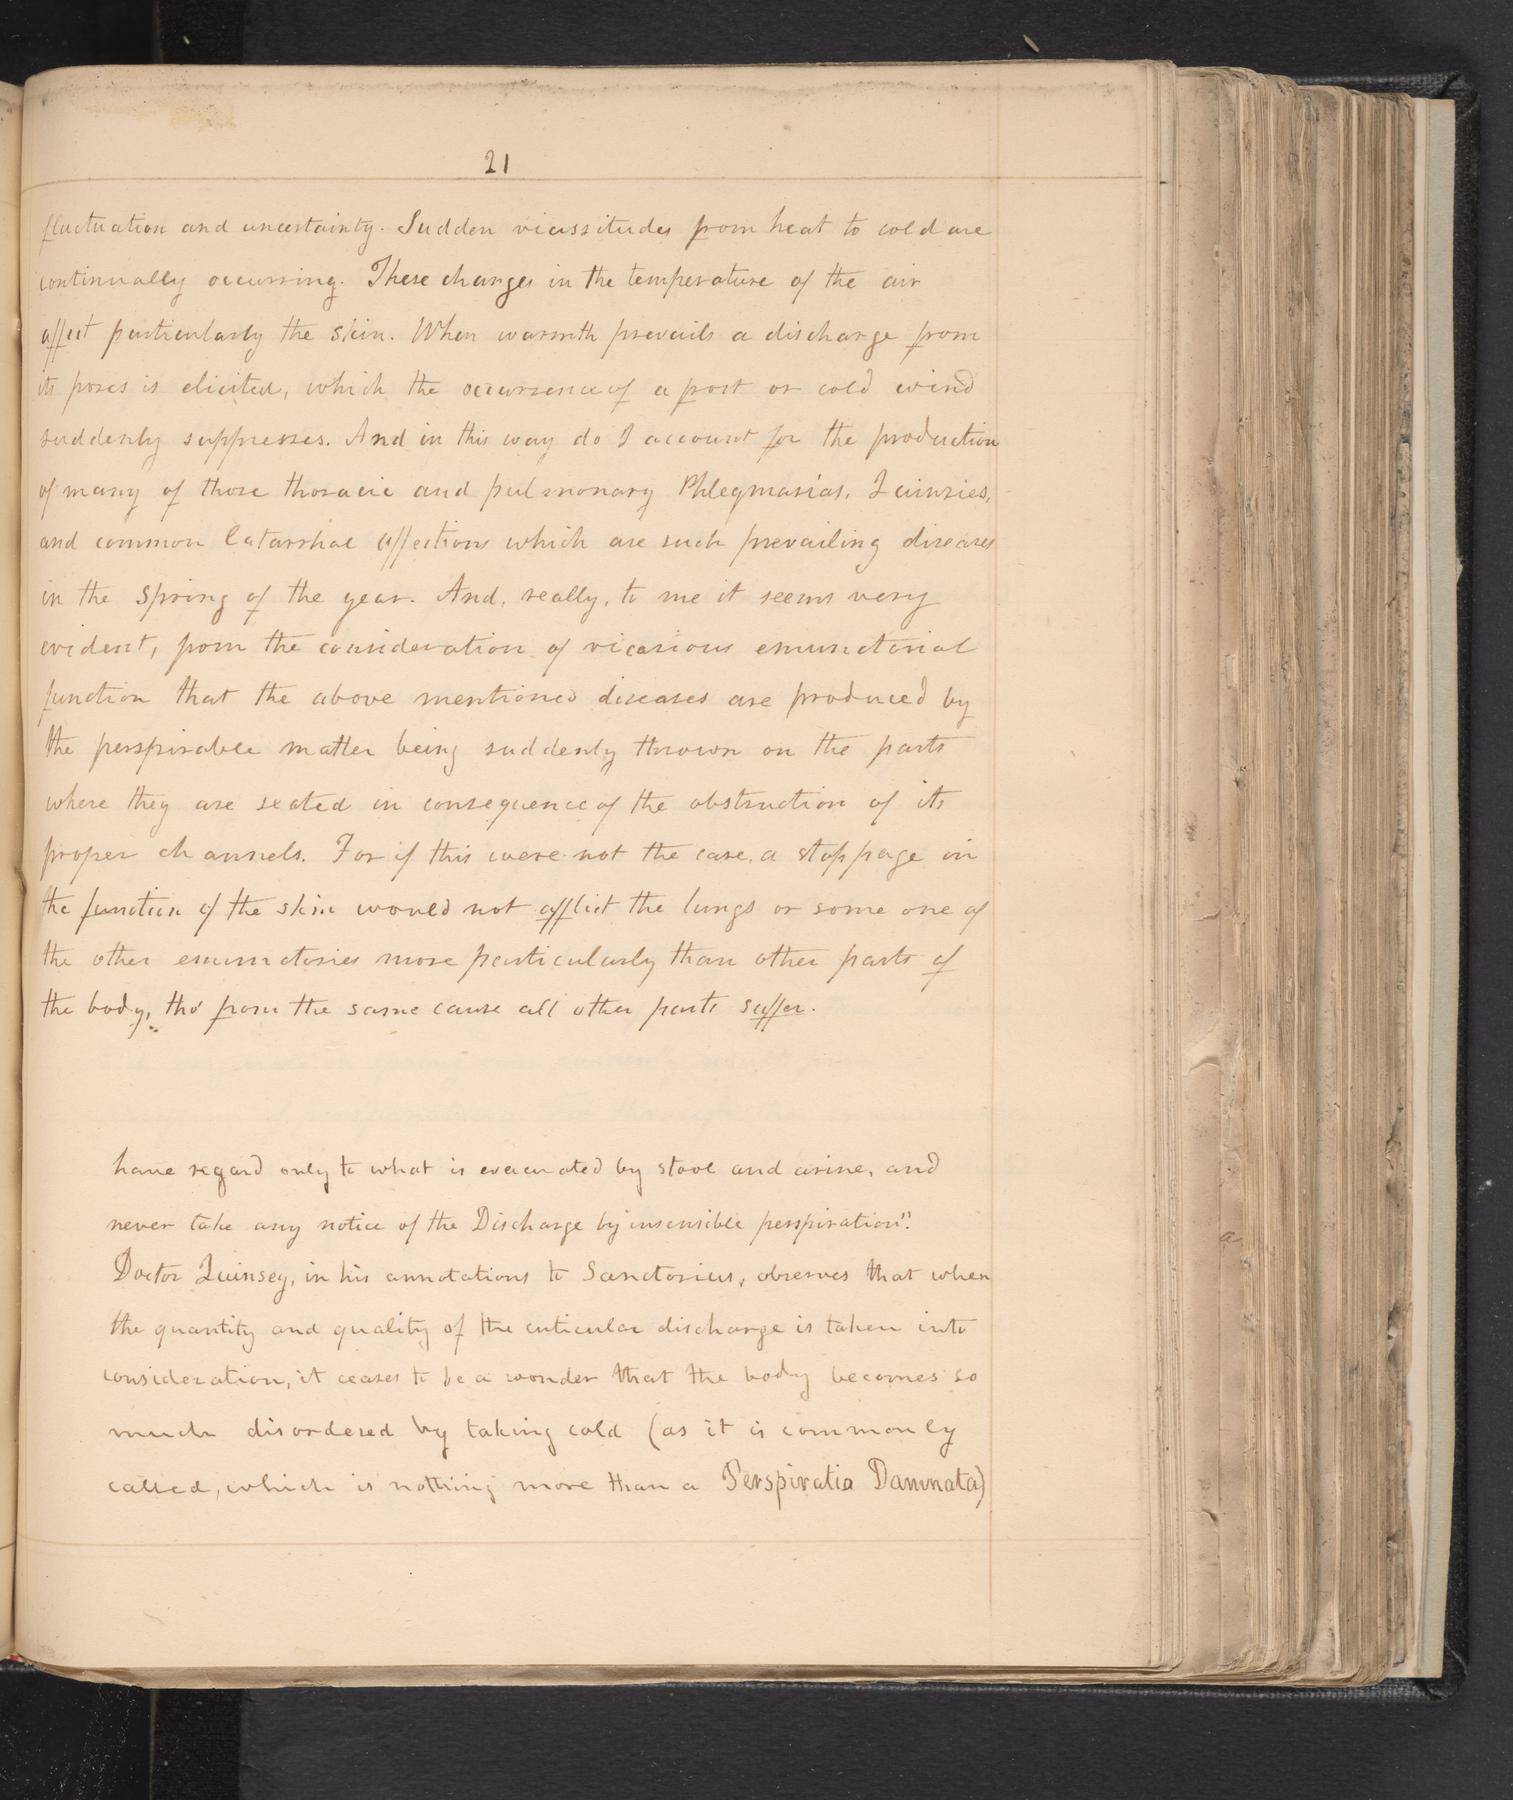 21
fluctuation and uncertainty. Sudden vicissitudes from heat to cold are
continually occurring. These changes in the temperature of the air
affect particularly the skin. When warmth prevails a discharge from
its pores is elicited, which the occurrence of a frost or cold wind
suddenly suppresses. And in this way do I account for the production
of many of those thoracic and pulmonary Phlegmasias, Quinsies,
and common Catarrhal affections which are such prevailing diseases
in the spring of the year. And, really, to me it seems very
evident, from the consideration of vicarious emunctorial
function that the above mentioned diseases are produced by
the perspirable matter being suddenly thrown on the parts
where they are seated in consequence of the obstruction of its
proper channels. For if this were not the case, a stoppage in
the function of the skin would not afflict the lungs or some one of
the other emunctories more particularly than other parts of
the body, tho' from the same cause all other parts suffer.
have regard only to what is evacuated by stool and urine, and
never take any notice of the Discharge by insensible perspiration".
Doctor Quinsey, in his annotations to Sanctorius, observes that when
the quantity and quality of the cuticular discharge is taken into
consideration, it ceases to be a wonder that the body becomes so
much disordered by taking cold (as it is commonly
called, which is nothing more than a Perspiratio Damnata)